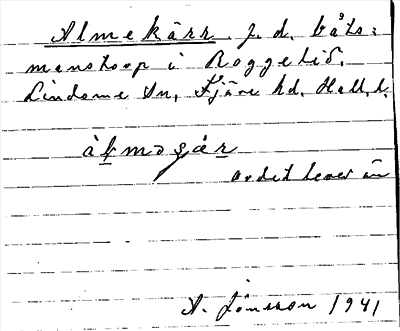 Almekärr. f. d. båts=
manstorp i Roggelid,
Lindome sn, Fjäre hd. Hall. l.
àlmogä̀r
ordet lever än
A. Jönsson 1941